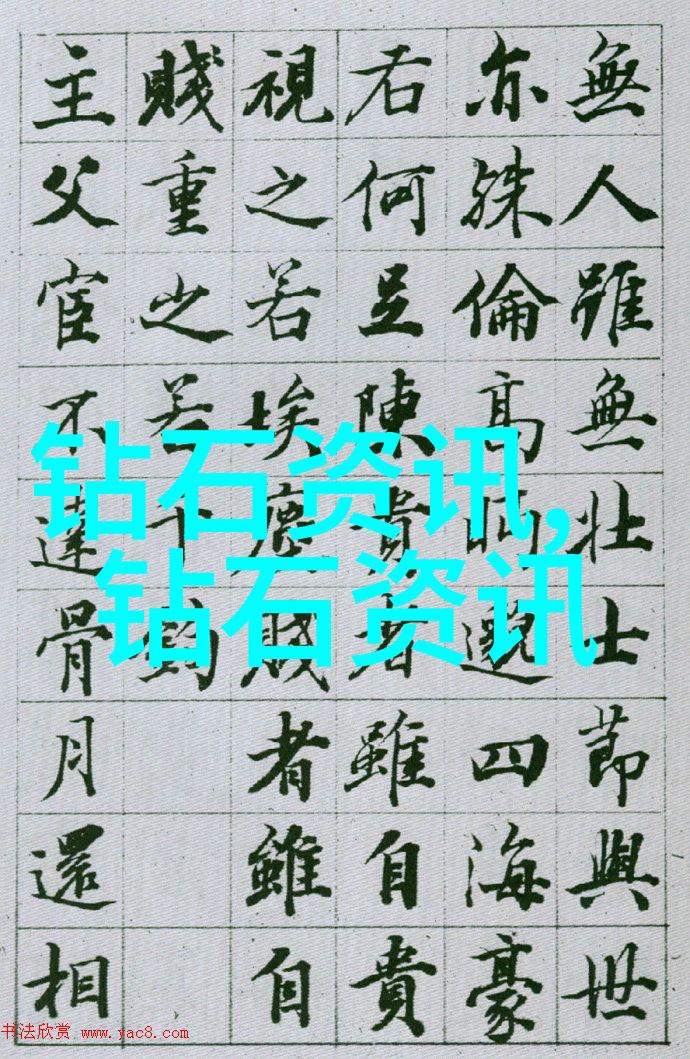 無人雖無壯士節與世
亦殊倫高眄邈四海豪
右何足陳貴者雖自貴
視之若埃塵賤者雖自
賤重之若千鈞
主父宦不達骨月還相
钻石资讯,
钻石资讯
书法欣赏 www.yac8.com